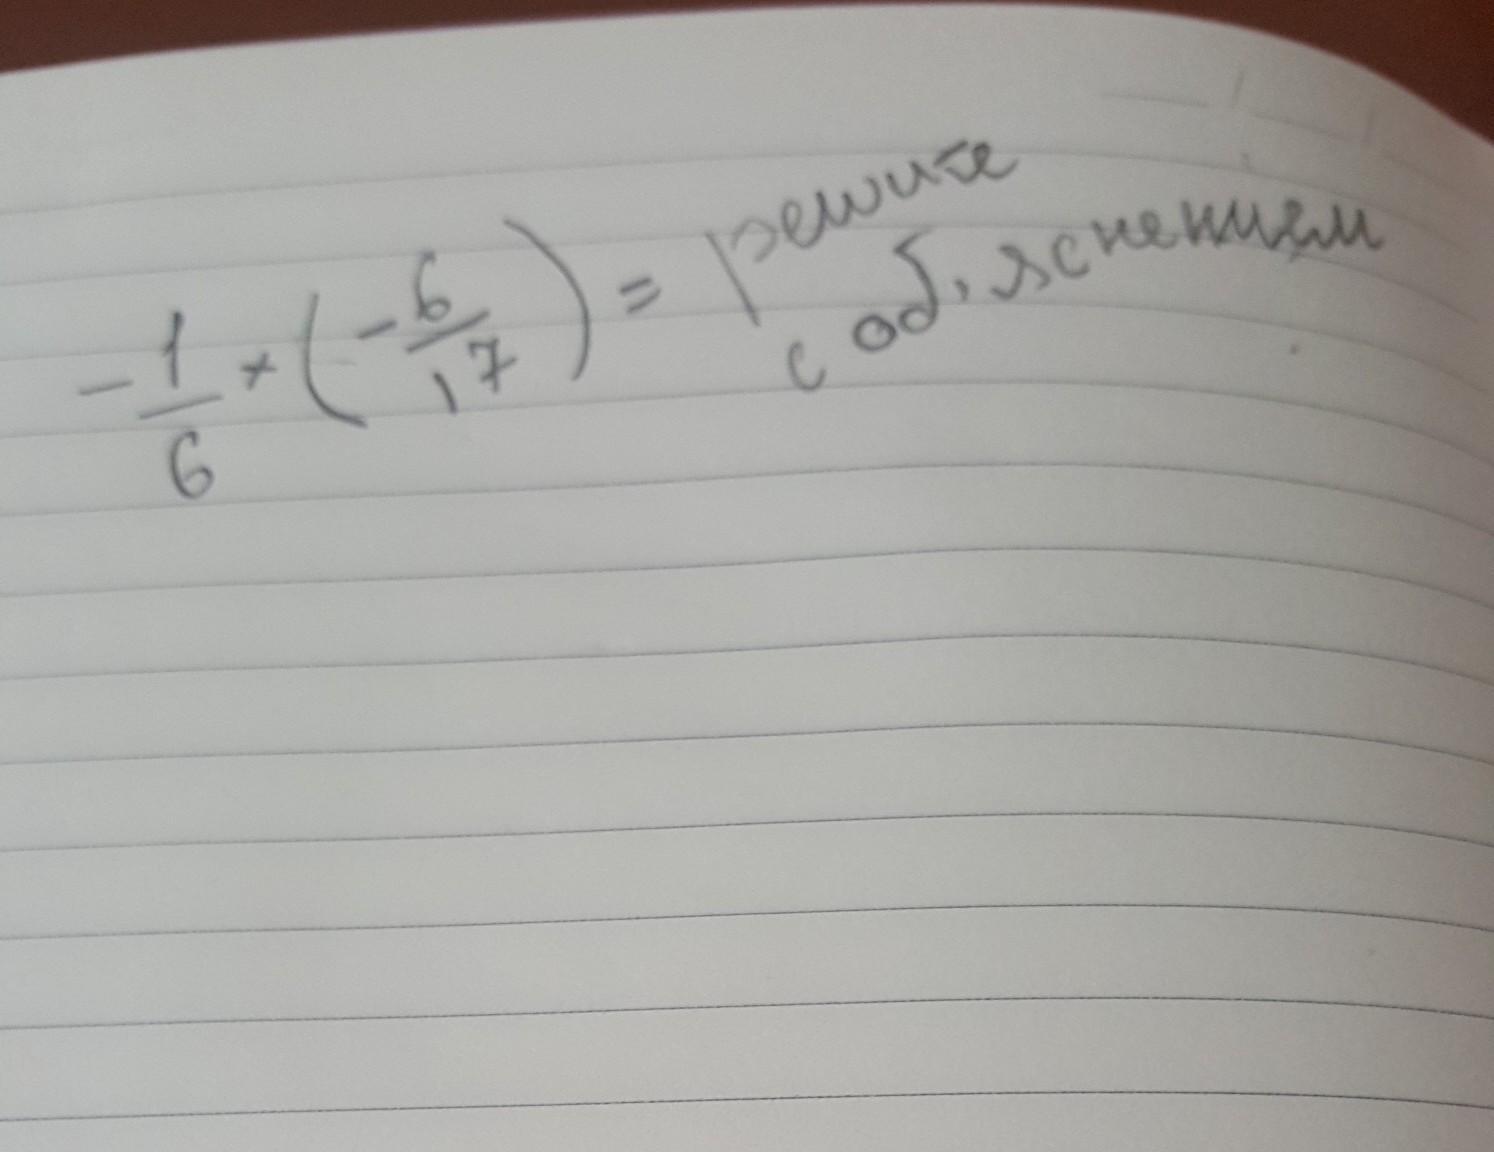 -1/6 + (-6/17) = решите
с об, яснением